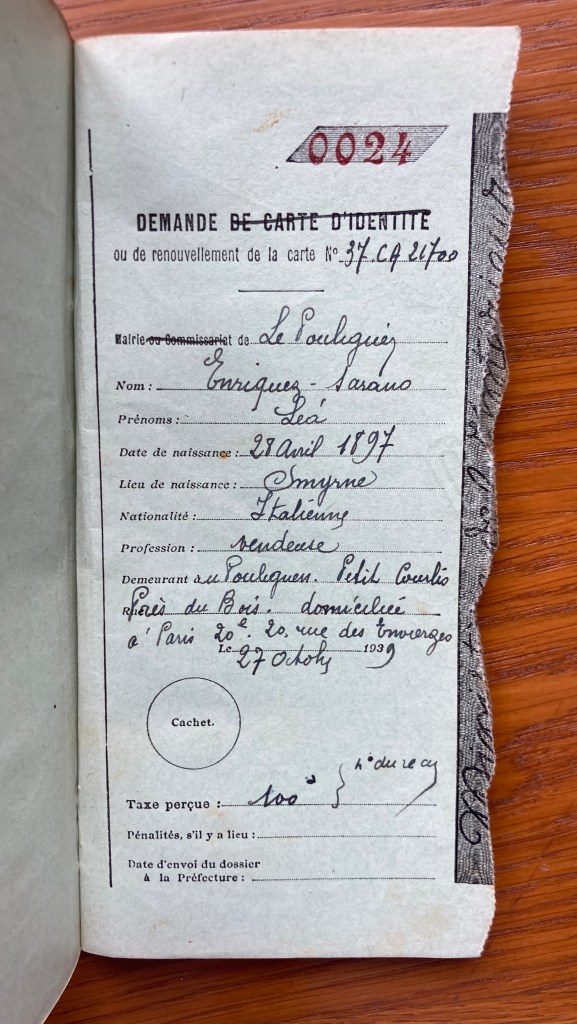 0024
DEMANDE DE CARTE D'IDENTITÉ
ou de renouvellement de la carte N° 37.CA 21700
Mairie ou Commissariat de Le Pouliguen
Nom : Enriquez - Sarano
Prénoms : Léa
Date de naissance : 28 Avril 1897
Lieu de naissance : Smyrne
Nationalité : Italienne
Profession : vendeuse
Demeurant à u Pouliguen. Petit Courlis
Rue Près du Bois. domiciliée
à Paris 20e. 20, rue des Envierges
Le 27 Octobre 1939
Cachet.
Taxe perçue : 100
Pénalités, s'il y a lieu :
Date d'envoi du dossier
à la Préfecture :